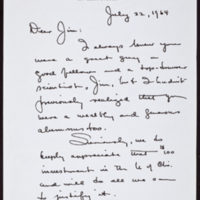 July 22, 1964
Dear Jim:
I always knew you
were a great guy, a
good fellow and a top-drawer
scientist, Jim, but I hadn't
previously realized that you
were a wealthy and generous
alumnus too.
Seriously, we do
deeply appreciate that $100
investment in the U of Chi.
and will do all we can
to justify it.